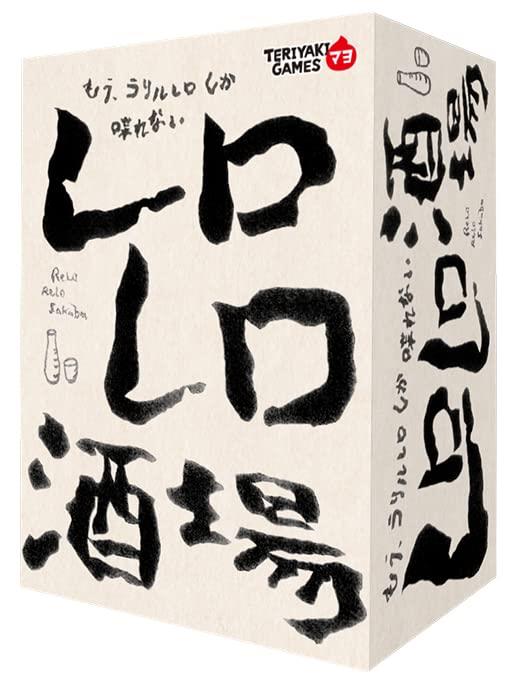 TERIYAKI
GAMES マヨ
もう、ラリルレロしか
喋れない
レロ
レロ
酒場
ReLo
ReLo
Sakaba
酒場
レロレロ
もう、ラリルレロしか喋れない
ReLo
ReLo
Sakaba